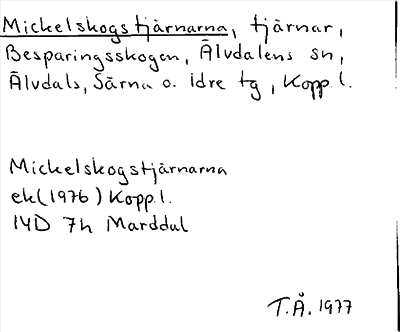 Mickelskogstjärnarna, tjärnar,
Besparingsskogen, Älvdalens sn,
Älvdals, Särna o. Idre tg, Kopp. l.
Mickelskogstjärnarna
ek (1976) Kopp. l.
14D 7h Marddal
T.Å. 1977